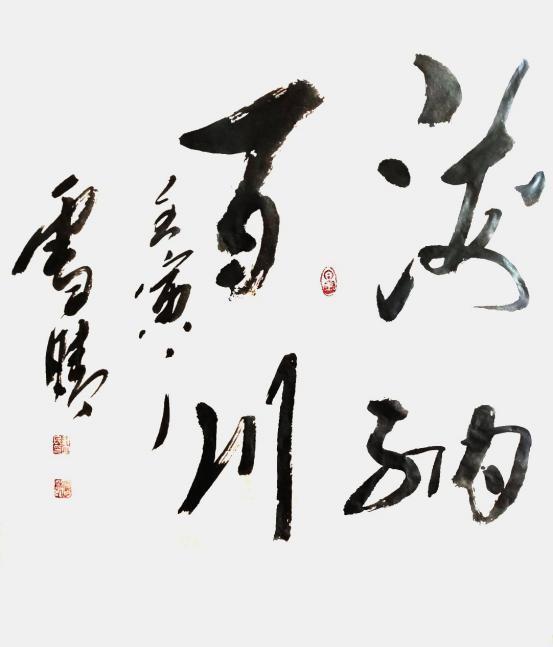 海纳
百川
壬寅
雪晴